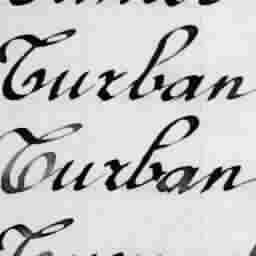 Turban
Turban